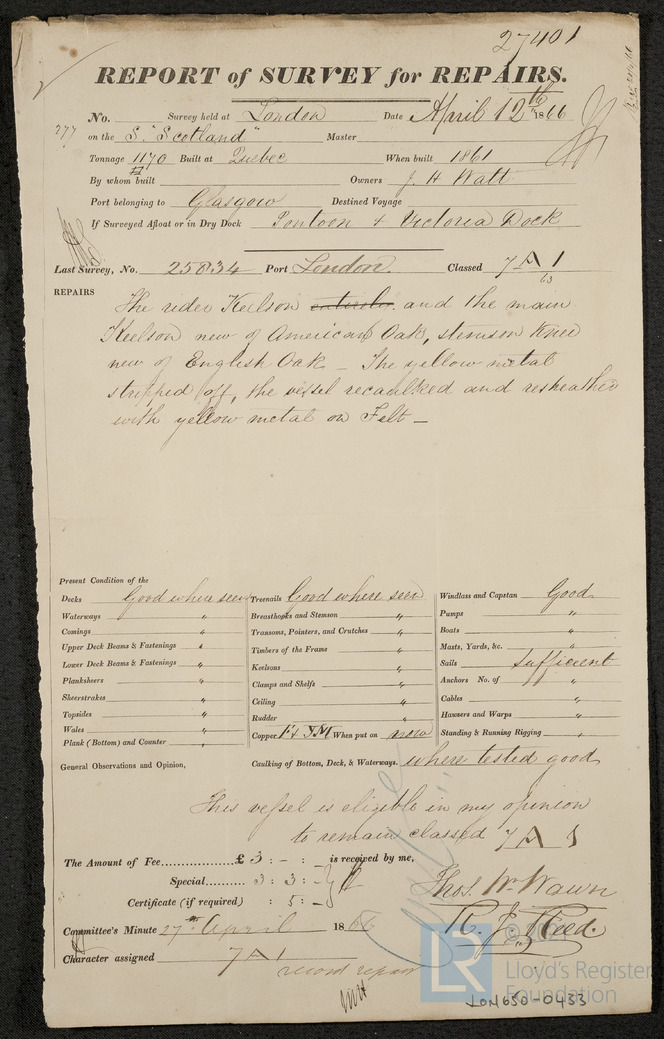 27401
REPORT of SURVEY for REPAIRS.
No. Survey held at London Date April 12th 1866
277 on the S. "Scotland" Master
Tonnage 1170 Built at Quebec When built 1861
By whom built Owners J. H Watt
Port belonging to Glasgow Destined Voyage
If Surveyed Afloat or in Dry Dock Pontoon & Victoria Dock
Last Survey, No. 25834 Port London. Classed 7 A 1
63
REPAIRS
The rider Keelson entirely and the main
Keelson new of American Oak, stemson Knee
new of English Oak _ The yellow metal
stripped off, the vessel recaulked and resheathed
with yellow metal on Felt _
Present Condition of the
Decks Good where seen Treenails Good where seen Windlass and Capstan Good
Waterways " Breasthooks and Stemson " Pumps "
Comings " Transons, Pointers, and Crutches " Boats "
Upper Deck Beams & Fastenings " Timbers of the Frame " Masts, Yards, &c. "
Lower Deck Beams & Fastenings " Keelsons " Sails sufficient
Planksheers " Clamps and Shelfs " Anchors No. of "
Sheerstrakes " Ceiling " Cables "
Topsides " Rudder " Hawsers and Warps "
Wales " Copper F & YM When put on now Standing & Running Rigging "
Plank (Bottom) and Counter "
General Observations and Opinion, Caulking of Bottom, Deck, & Waterways. where tested good
This vessel is eligible in my opinion
to remain classed 7 A 1
The Amount of Fee............... £ 3 : - : - is received by me,
Special......... 3 : 3 : -
Certificate (if required) : 5 : -
Thos. Wm Wawn
R. J. Reed.
Committee's Minute 27th April 1866
Character assigned 7 A 1
record repairs
LR
© 2021
Lloyd's Register
Foundation
LON650-0433